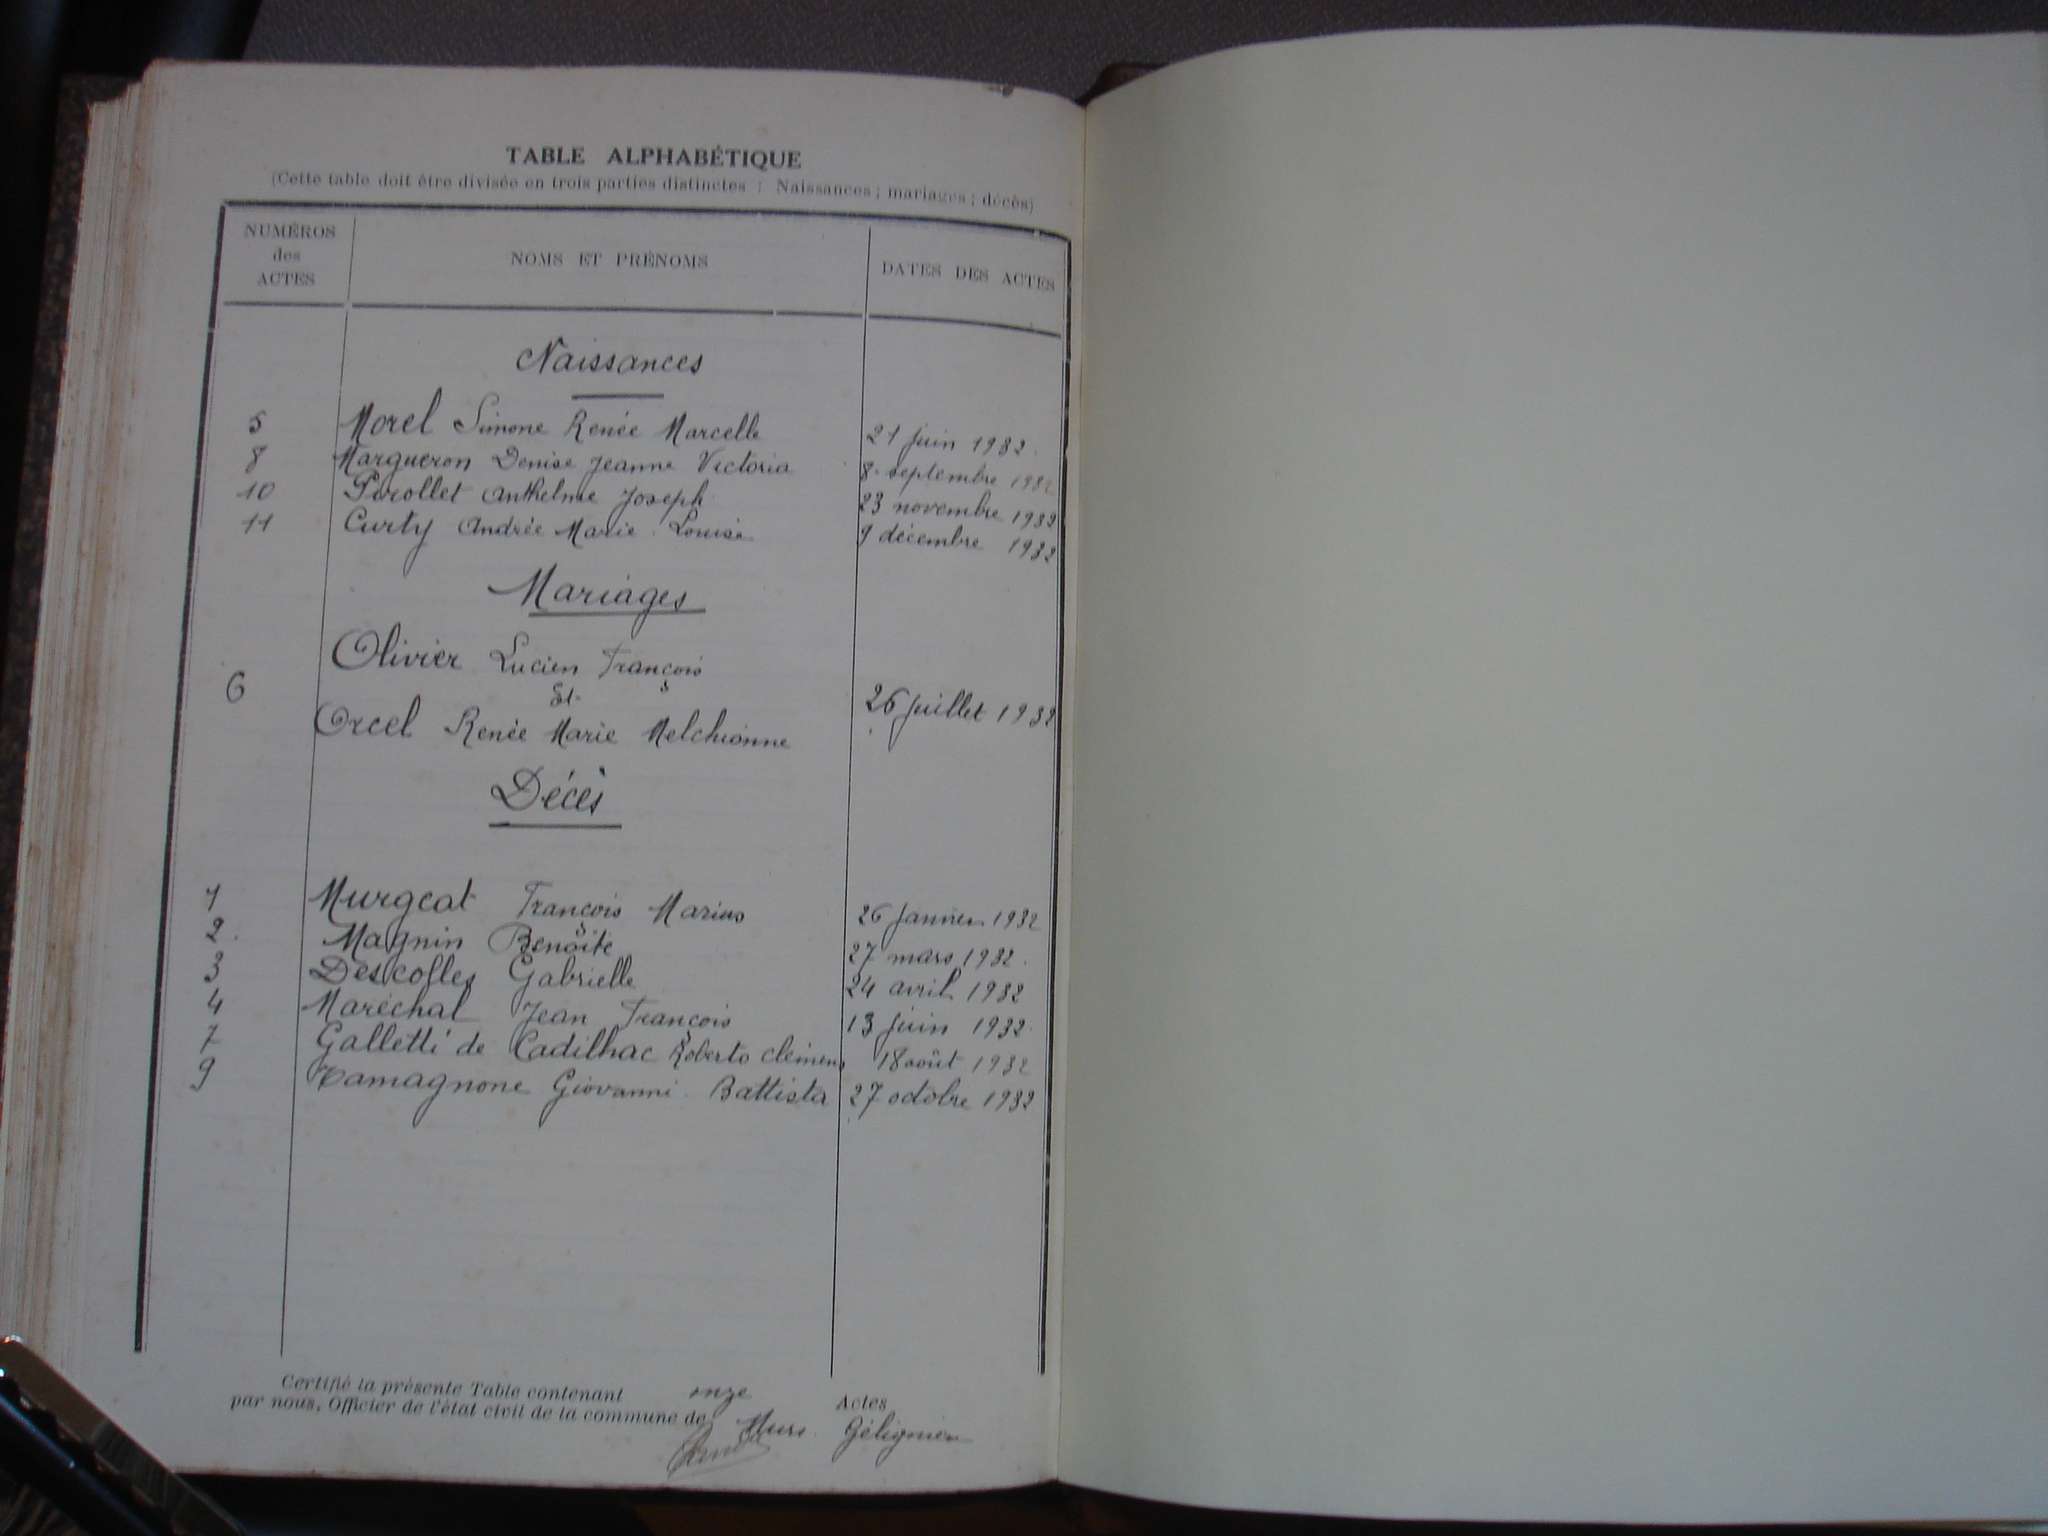 TABLE ALPHABÉTIQUE
(Cette table doit être divisée en trois parties distinctes : Naissances ; mariages ; décès)
NUMÉROS des ACTES NOMS ET PRÉNOMS DATES DES ACTES
Naissances
5 Morel Simone Renée Marcelle 21 juin 1932.
8 Margueron Denise Jeanne Victoria 8 septembre 1932
10 Pirollet Anthelme Joseph 23 novembre 1932
11 Curty Andrée Marie Louise 9 décembre 1932
Mariages
Olivier Lucien François
6 Et 26 juillet 1932
Orcel Renée Marie Melchionne
Décès
1 Murgeat François Marius 26 janvier 1932
2. Magnin Benoîte 27 mars 1932.
3 Descolles Gabrielle 24 avril 1932
4 Maréchal Jean François 13 juin 1932.
7 Galletti de Cadilhac Roberto Clemens 18 août 1932
9 Tamagnone Giovanni Battista 27 octobre 1932
Certifié la présente Table contenant onze Actes
par nous, Officier de l'état civil de la commune de Murs Gélignieu